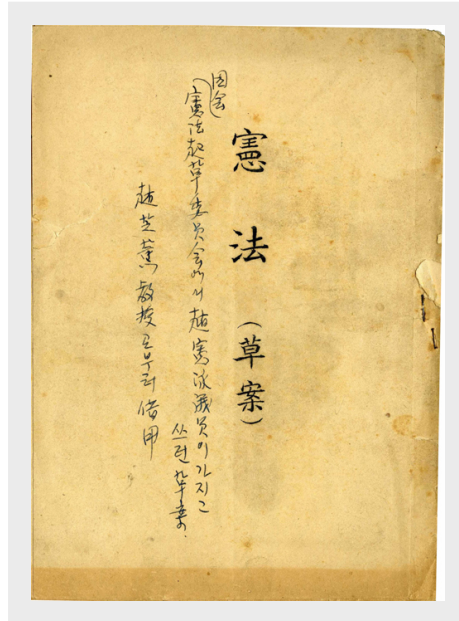 憲法（草案）
(国会)
憲法起草委員会에서 趙憲泳議員이 가지고
쓰던 草案.
趙芝薰 敎授로부터 借用